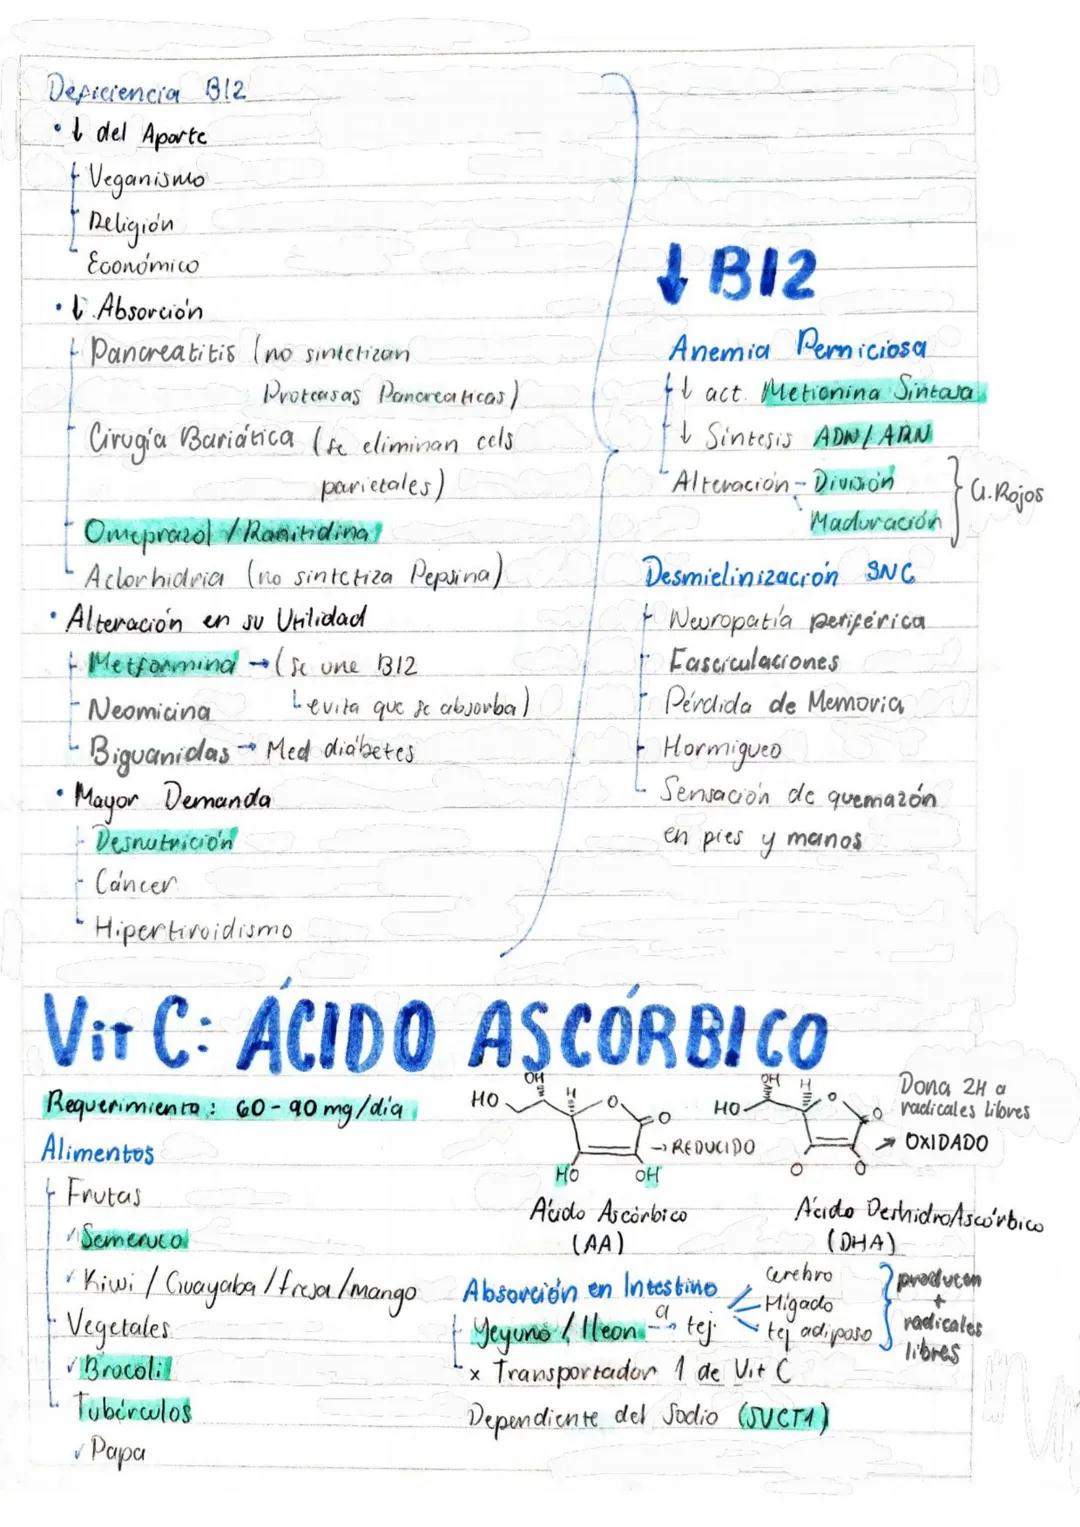 Deficiencia B12
• ↓ del Aporte
Veganismo
Religión
Económico
• ↓ Absorción
Pancreatitis (no sintetizan
Proteasas Pancreaticas)
Cirugía Bariática (se eliminan cels
parietales)
Omeprazol / Ranitidina
Aclorhidria (no sintetiza Pepsina)
• Alteración en su Utilidad
Metformina → (se une B12
Neomicina ↳ evita que se absorba)
Biguanidas → Med diabetes
• Mayor Demanda
Desnutrición
Cáncer
Hipertiroidismo
↓ B12
Anemia Perniciosa
↓ act. Metionina Sintasa
↓ Síntesis ADN/ARN
Alteración - División
Maduración
G. Rojos
Desmielinización SNC
Neuropatía periférica
Fasciculaciones
Pérdida de Memoria
Hormigueo
Sensación de quemazón
en pies y manos
Vit C: ÁCIDO ASCÓRBICO
Requerimiento: 60-90 mg/día
Alimentos
Frutas
✓ Semeruco
✓ Kiwi / Guayaba / fresa / mango
Vegetales
✓ Brocoli
Tubérculos
✓ Papa
OH
HO H O O
→ REDUCIDO
HO OH
Ácido Ascórbico
(AA)
OH
HO H O O
O O
Dona 2H a
radicales libres
→ OXIDADO
Ácido DeshidroAscórbico
(DHA)
Absorción en Intestino
Yeyuno / Ileon a → tej.
Cerebro
Hígado
tej adiposo
producen
+
radicales
libres
x Transportador 1 de Vit C
Dependiente del Sodio (SVCT1)